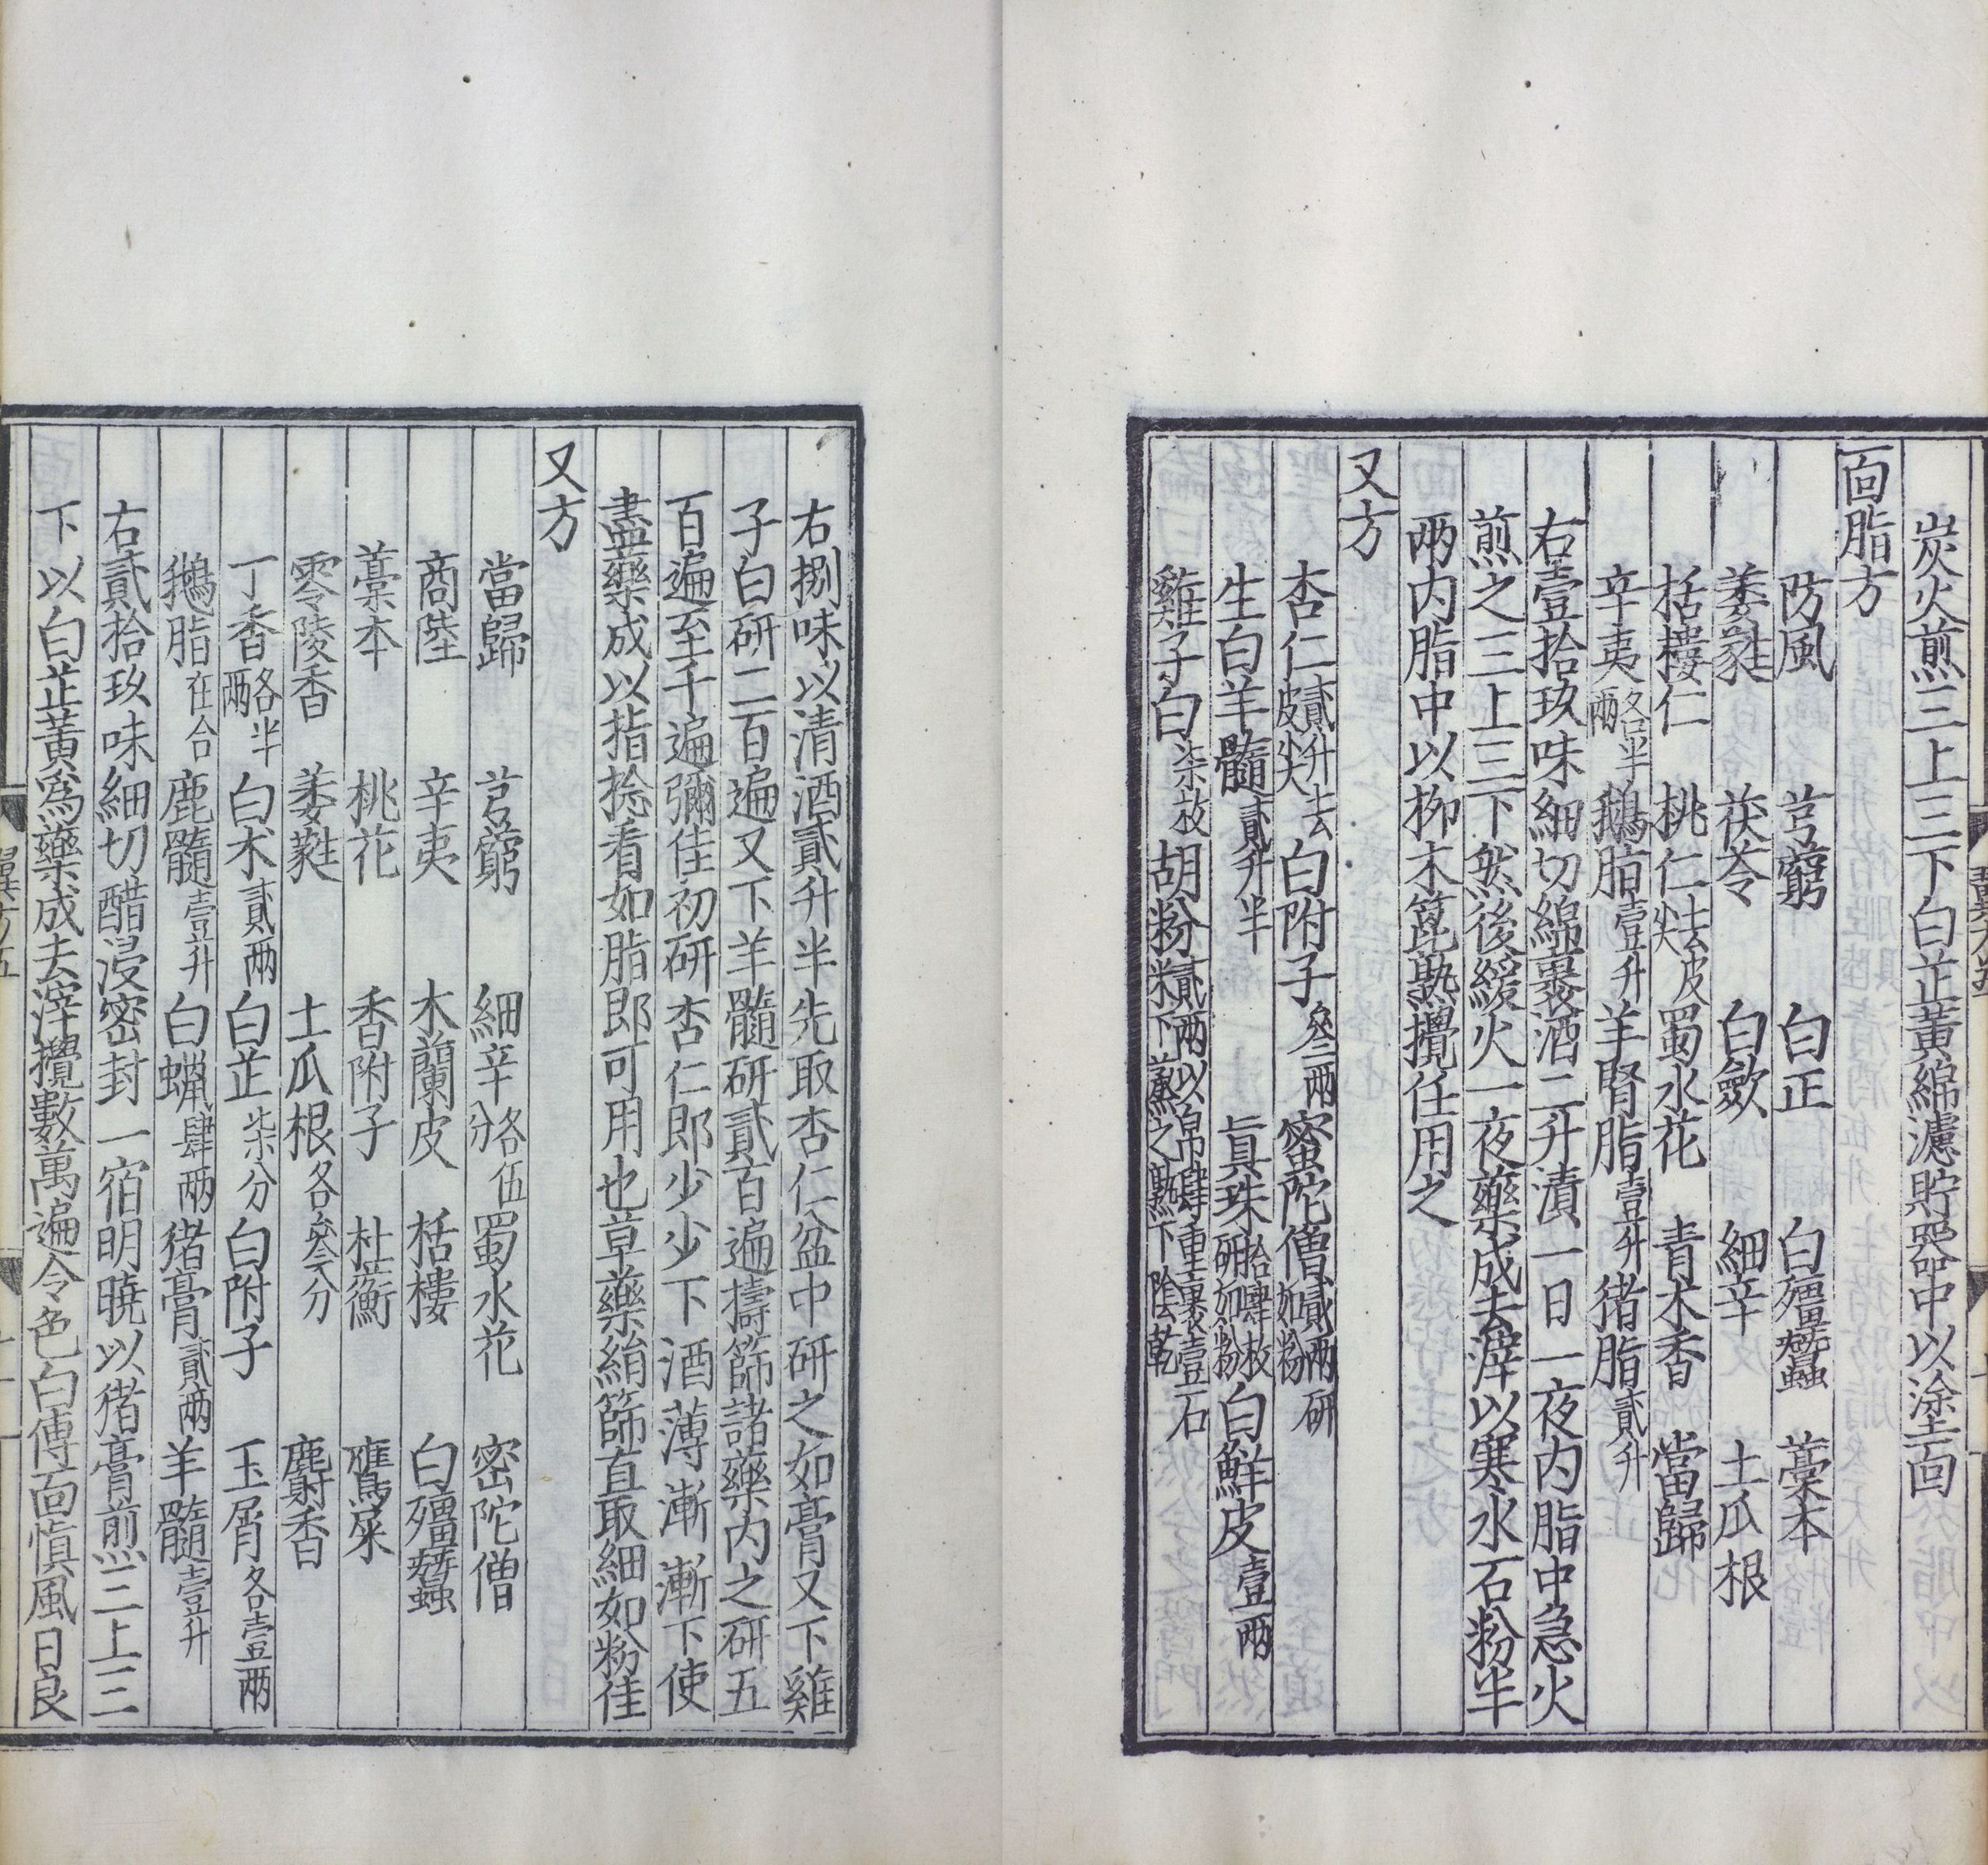 炭火煎三上三下白芷黃綿濾貯器中以塗面
面脂方
防風 芎藭 白芷 白殭蠶 藁本
萎蕤 茯苓 白歛 細辛 土瓜根
栝樓仁 桃仁去皮尖 蜀水花 青木香 當歸
辛夷各半兩 鵝脂壹升 羊腎脂壹升 猪脂貳升
右壹拾玖味細切綿裹酒二升漬一日一夜内脂中急火
煎之三上三下然後緩火一夜藥成去滓以寒水石粉半
兩内脂中以柳木箆熟攪任用之
又方
杏仁貳升去皮尖 白附子叁兩 蜜陀僧貳兩研如粉
生白羊髓貳升半 真珠拾肆枚研如粉 白鮮皮壹兩
雞子白柒枚 胡粉貳兩以帛肆重裹壹石米下蒸之熟下陰乾
右捌味以清酒貳升半先取杏仁盆中研之如膏又下雞
子白研二百遍又下羊髓研貳百遍擣篩諸藥内之研五
百遍至千遍彌佳初研杏仁即少少下酒薄漸漸下使
盡藥成以指捻看如脂即可用也草藥絹篩直取細如粉佳
又方
當歸 芎藭 細辛各伍分 蜀水花 密陀僧
商陸 辛夷 木蘭皮 栝樓 白殭蠶
藁本 桃花 香附子 杜蘅 鷹屎
零陵香 萎蕤 土瓜根各叁分 麝香
丁香各兩半 白术貳兩 白芷柒分 白附子 玉屑各壹兩
鵝脂伍合 鹿髓壹升 白蠟肆兩 猪膏貳兩 羊髓壹升
右貳拾玖味細切醋浸密封一宿明曉以猪膏煎三上三
下以白芷黃爲藥成去滓攪數萬遍令色白傅面慎風日良